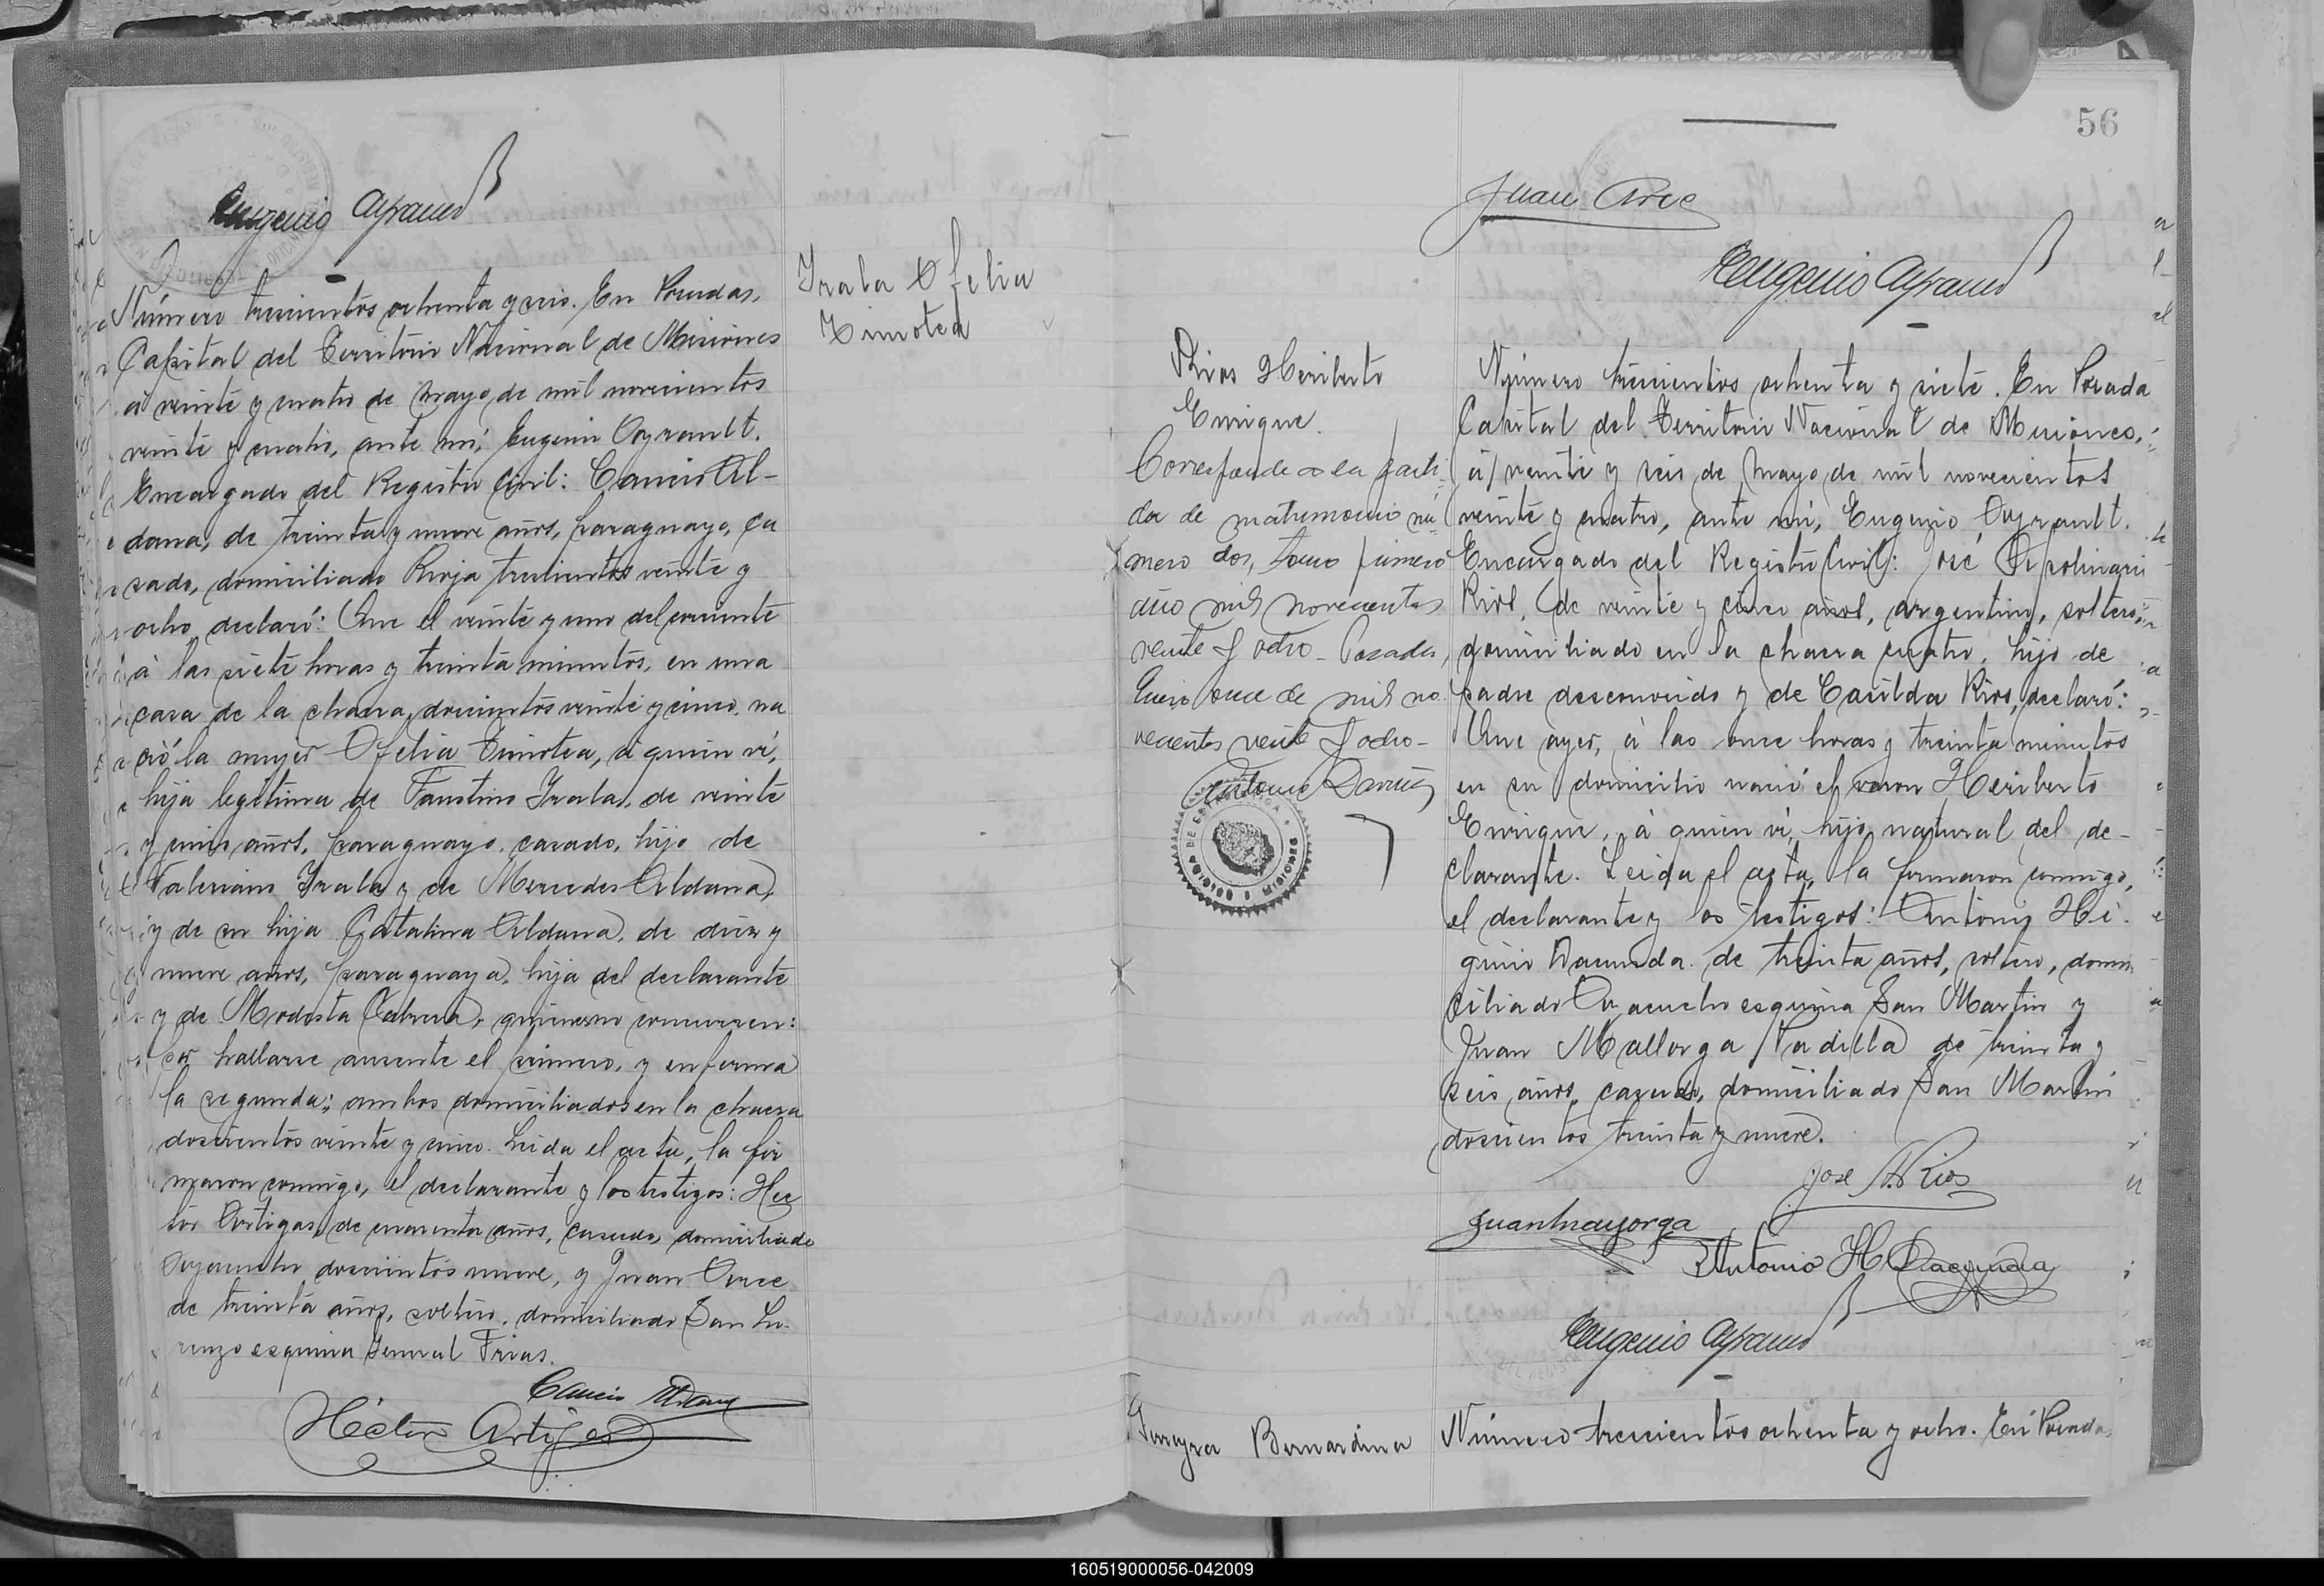 Eugenio Ayrault
Número trescientos ochenta y seis. En Posadas,
Capital del Territorio Nacional de Misiones
á veinte y cuatro de Mayo de mil novecientos
veinte y cuatro, ante mí, Eugenio Ayrault.
Encargado del Registro Civil: Cancio Al-
dana, de treinta y nueve años, paraguayo, ca
sado, domiciliado Rioja trescientos veinte y
ocho, declaró: Que el veinte y uno del corriente
á las siete horas y treinta minutos, en una
casa de la chacra doscientos veinte y cinco, na
ció la mujer Ofelia Timotea, á quien ví,
hija legítima de Faustino Irala, de veinte
y cinco años, paraguayo, casado, hijo de
Valeriano Irala y de Mercedes Aldana,
y de su hija Catalina Aldana, de diez y
nueve años, paraguaya, hija del declarante
y de Modesta Cabrera, quienes no concurren:
por hallarse ausente el primero, y enferma
la segunda; ambos domiciliados en la chacra
doscientos veinte y cinco. Leida el acta, la fir
maron conmigo, el declarante y los testigos: Hec
tor Artigas, de cuarenta años, casado, domiciliado
Ayacucho doscientos nueve, y Juan Arce
de treinta años, soltero, domiciliado San Lo-
renzo esquina General Frias.
Cancio Aldana
Héctor Artigas
Irala Ofelia
Timotea
56
Juan Arce
Eugenio Ayrault
Rios Heriberto
Enrique.
Corresponde a la parti
da de matrimonio nú
mero dos, tomo primero
año mil novecientos
veinte y ocho - Posadas,
Enero once de mil no
vecientos veinte y ocho -
Número trescientos ochenta y siete. En Posada
Capital del Territorio Nacional de Misiones,
á veinte y seis de Mayo de mil novecientos
veinte y cuatro, ante mí, Eugenio Ayrault.
Encargado del Registro Civil: José Apolinario
Rios, de veinte y cinco años, argentino, soltero,
domiciliado en la chacra cuatro, hijo de
padre desconocido y de Casilda Rios, declaró:
Que ayer, á las once horas y treinta minutos
en su domicilio nació el varon Heriberto
Enrique, á quien ví, hijo natural del de-
clarante. Leida el acta, la firmaron conmigo,
el declarante y los testigos: Antonio Hi-
ginio Dacunda de treinta años, soltero, domi
ciliado Ayacucho esquina San Martin y
Juan Mallorga Padilla de treinta y
seis años, casado, domiciliado San Martin
doscientos treinta y nueve.
José A. Rios
Juan Mayorga
Antonio H Dacunda
Eugenio Ayrault
Ferreyra Bernardina
Número trescientos ochenta y ocho. En Posadas,
160519000056-042009